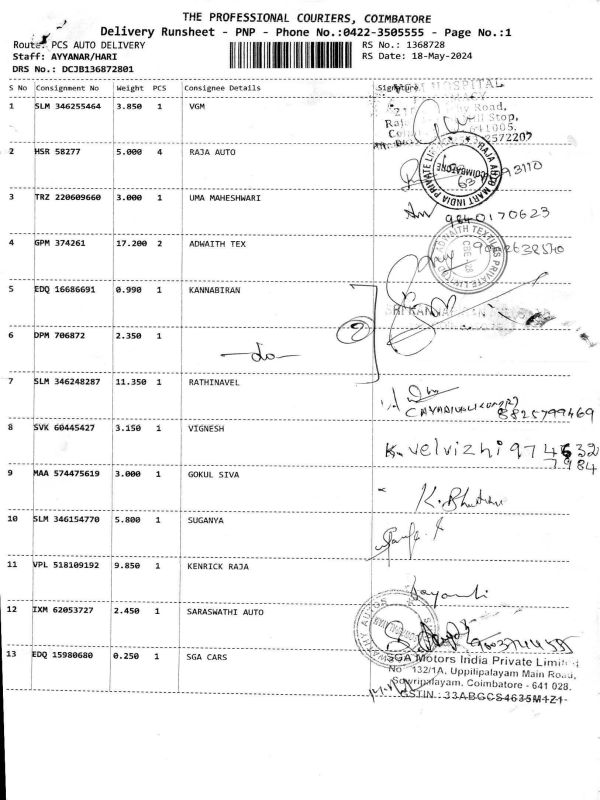 THE PROFESSIONAL COURIERS, COIMBATORE
Delivery Runsheet - PNP - Phone No.:0422-3505555 - Page No.:1
Route: PCS AUTO DELIVERY RS No.: 1368728
Staff: AYYANAR/HARI RS Date: 18-May-2024
DRS No.: DCJB136872801
S No Consignment No Weight PCS Consignee Details Signature
HOSPITAL
Road,
Stop,
1 SLM 346255464 3.850 1 VGM
2572207
2 HSR 58277 5.000 4 RAJA AUTO
RAJA AUTO MART INDIA PRIVATE
COIMBATORE
93110
3 TRZ 220609660 3.000 1 UMA MAHESHWARI
9840170623
4 GPM 374261 17.200 2 ADWAITH TEX
ADWAITH TEXTILES PRIVATE LIMITED
CBE-18
5 EDQ 16686691 0.990 1 KANNABIRAN
2
6 DPM 706872 2.350 1
-do-
7 SLM 346248287 11.350 1 RATHINAVEL
8825799469
8 SVK 60445427 3.150 1 VIGNESH
K. velvizhi 974632
7984
9 MAA 574475619 3.000 1 GOKUL SIVA
10 SLM 346154770 5.800 1 SUGANYA
11 VPL 518109192 9.850 1 KENRICK RAJA
Jayanti
12 IXM 62053727 2.450 1 SARASWATHI AUTO
13 EDQ 15980680 0.250 1 SGA CARS
SGA Motors India Private Limited
No. 132/1A, Uppilipalayam Main Road,
Sowripalayam, Coimbatore - 641 028.
GSTIN : 33ABGCS4635M1Z1